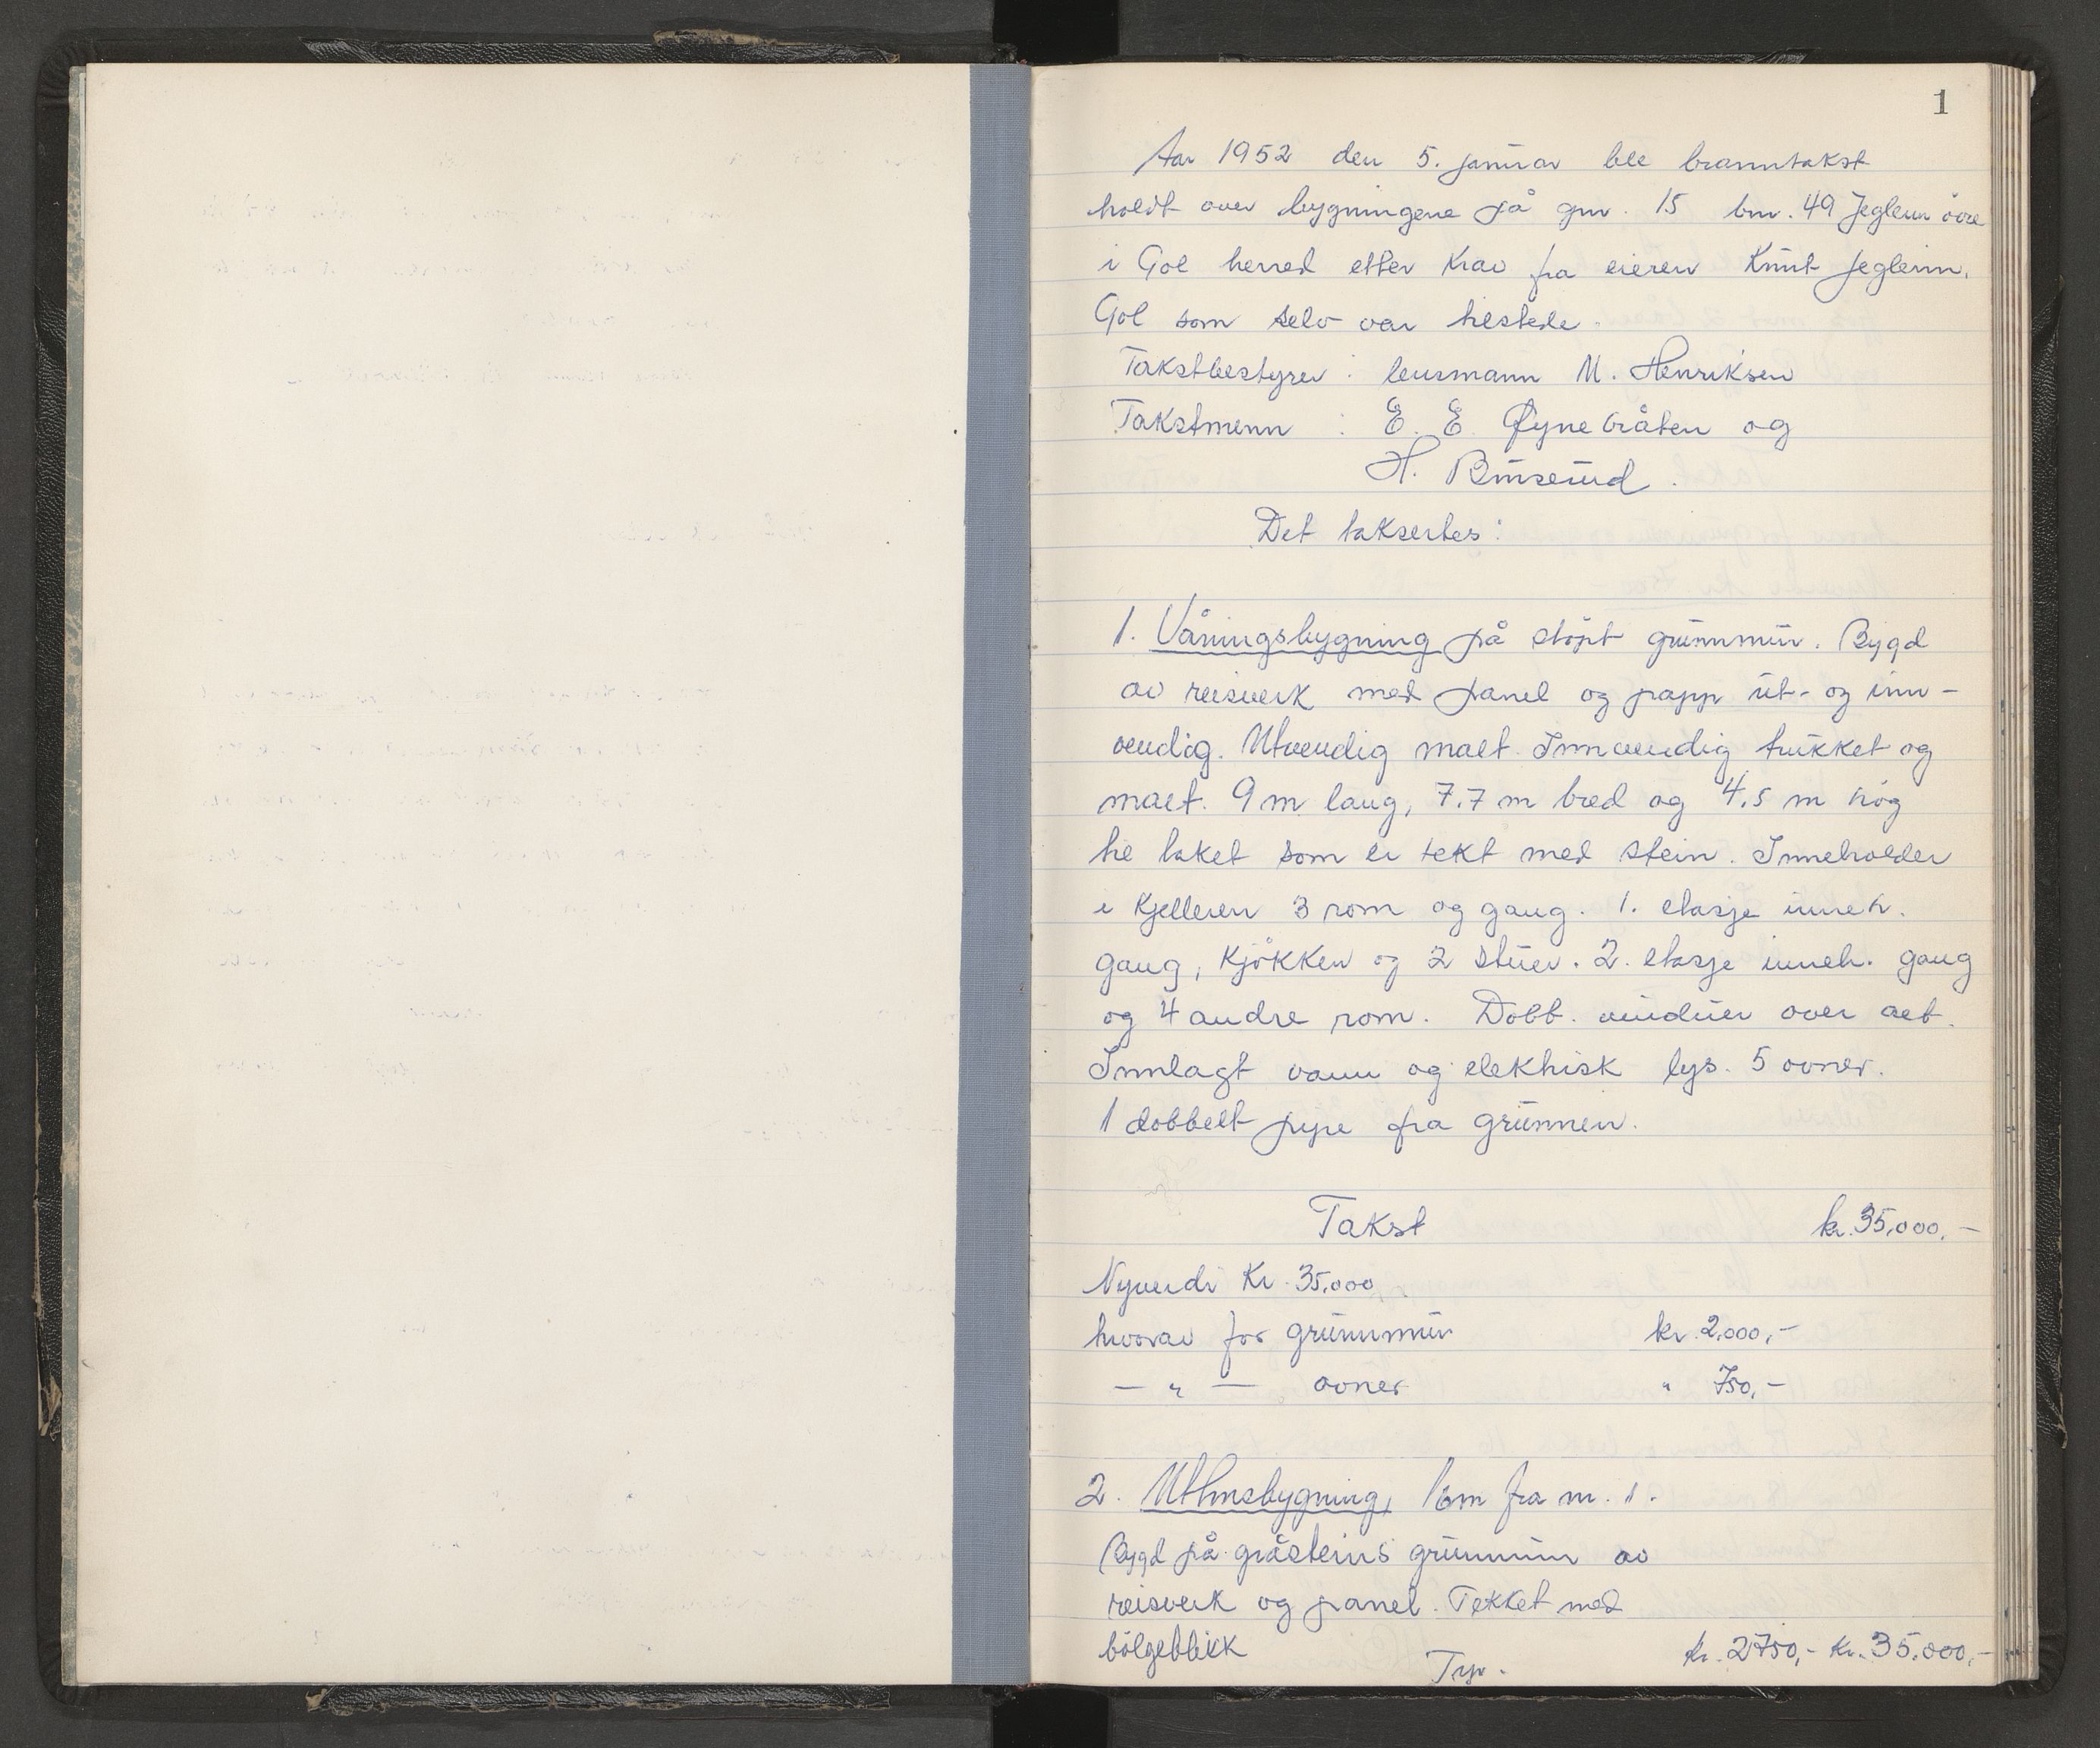 1
Aar 1952 den 5. januar ble branntakst
holdt over bygningene på gnr. 15 bnr. 49 Jeglum övre
i Gol herred etter krav fra eieren Knut Jeglum,
Gol som selv var tilstede.
Takstbestyrer : lensmann M. Henriksen
Takstmenn : E. E. Øynebråten og
H. Ruuserud.
Det taksertes:
1. Våningsbygning på stöpt grunnmur. Bygd
av reisverk med panel og papp ut- og inn-
vendig. Utvendig malt. Innvendig trukket og
malt. 9 m lang, 7.7 m bred og 4.5 m hög
til taket som er tekt med stein. Inneholder
i kjelleren 3 rom og gang. 1. etasje inneh.
gang, kjökken og 2 stuer. 2. etasje inneh. gang
og 4 andre rom. Dobb. vinduer over alt.
Innlagt vann og elektrisk lys. 5 ovner.
1 dobbelt pipe fra grunnen.
Takst kr. 35.000,-
Nyverdi kr. 35.000
hvorav for grunnmur kr. 2.000,-
— " — ovner " 750,-
2. Uthusbygning, 16m fra nr. 1.
Bygd på gråsteins grunnmur av
reisverk og panel. Tekket med
bölgeblikk
Trp. kr. 2750,- kr. 35.000,-